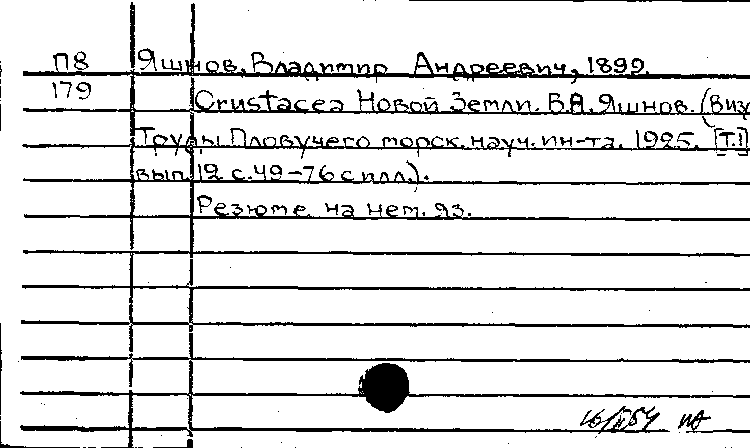 П8 Яшнов, Владимир Андреевич, 1899.
179 Crustacea Новой Земли. В.А. Яшнов. (Виз
Труды Пловучего морск. науч. ин-та. 1925. [Т.1]
вып. 12 с. 49-76 с илл.).
Резюме на нем. яз.